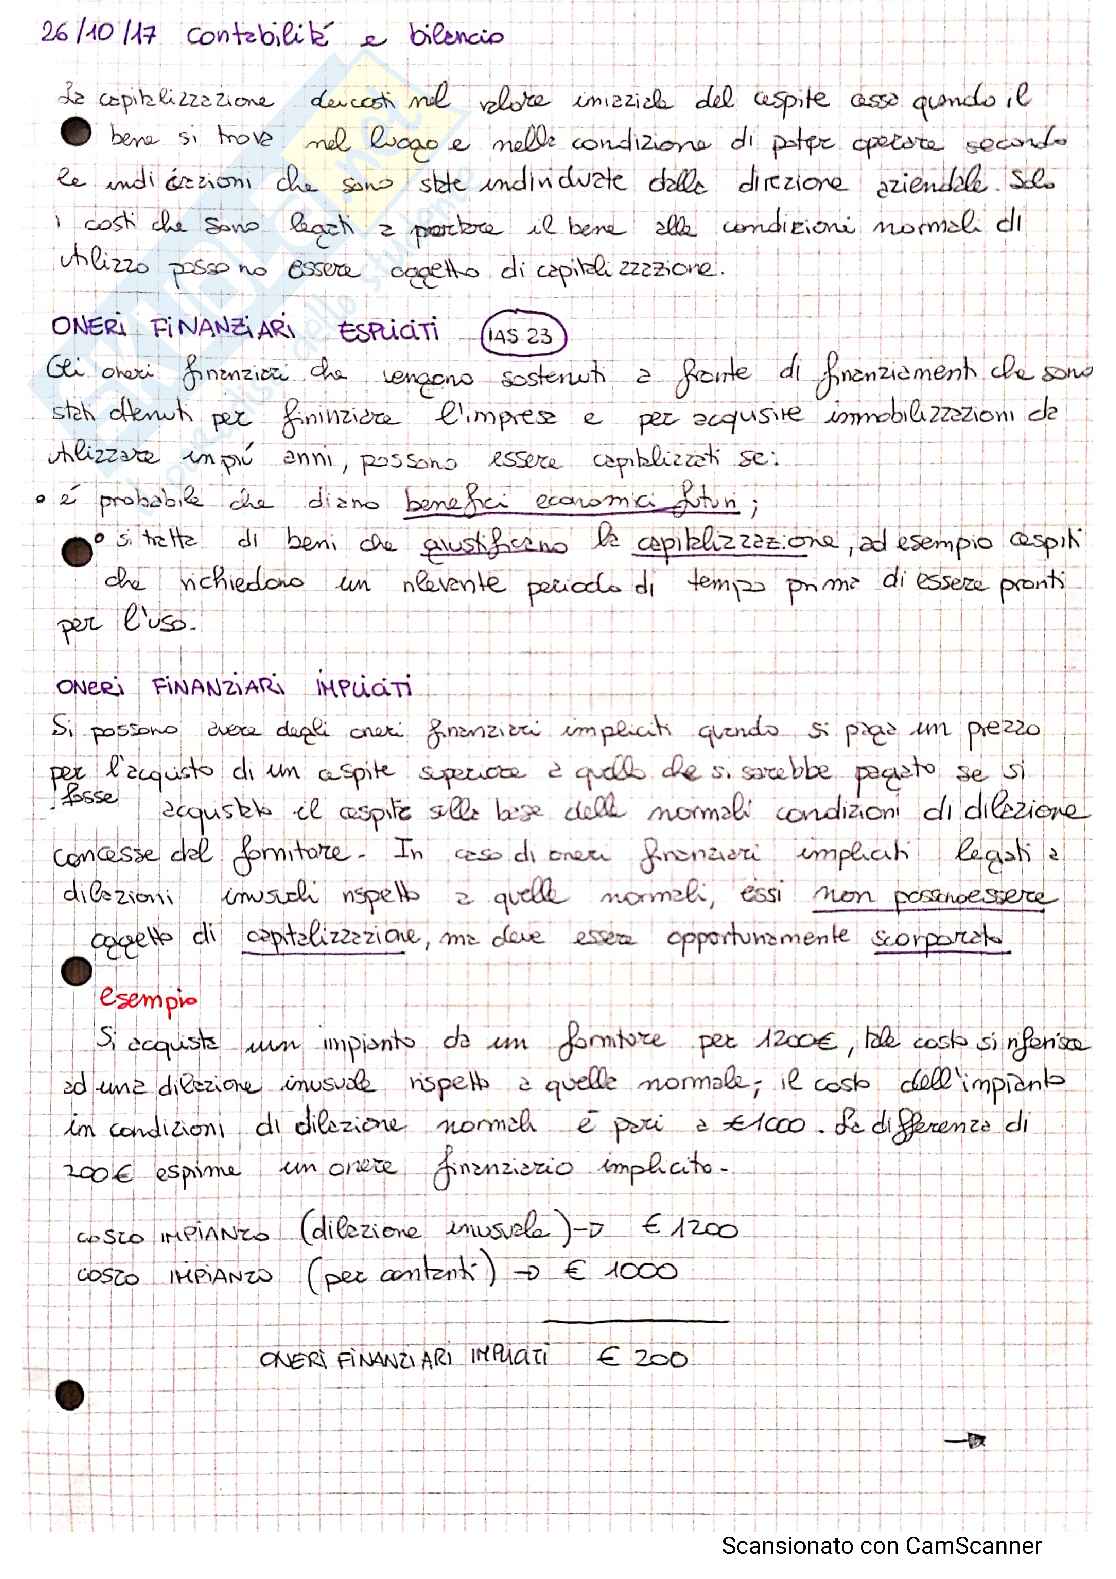 26/10/17 Contabilità e bilancio
La capitalizzazione dei costi nel valore iniziale del cespite cessa quando il
bene si trova nel luogo e nella condizione di poter operare secondo
le indicazioni che sono state individuate dalla direzione aziendale. Solo
i costi che sono legati a portare il bene alle condizioni normali di
utilizzo possono essere oggetto di capitalizzazione.
ONERI FINANZIARI ESPLICITI IAS 23
Gli oneri finanziari che vengono sostenuti a fronte di finanziamenti che sono
stati ottenuti per fininziare l'impresa e per acqusire immobilizzazioni da
utilizzare in più anni, possono essere capitalizzati se:
• è probabile che diano benefici economici futuri;
• si tratta di beni che giustificano la capitalizzazione, ad esempio cespiti
che richiedono un rilevante periodo di tempo prima di essere pronti
per l'uso.
ONERI FINANZIARI IMPLICITI
Si possono avere degli oneri finanziari impliciti quando si paga un prezzo
per l'acquisto di un cespite superiore a quello che si sarebbe pagato se si
fosse acquistato il cespite sulla base delle normali condizioni di dilazione
concesse dal fornitore. In caso di oneri finanziari impliciti legati a
dilazioni inusuali rispetto a quelle normali, essi non possono essere
oggetto di capitalizzazione, ma deve essere opportunamente scorporato
esempio
Si acquista un impianto da un fornitore per 1200€, tale costo si riferisce
ad una dilazione inusuale rispetto a quella normale; il costo dell'impianto
in condizioni di dilazione normali è pari a €1000. La differenza di
200€ espime un onere finanziario implicito.
COSTO IMPIANTO (dilazione inusuale) → € 1200
COSTO IMPIANTO (per contanti) → € 1000
ONERI FINANZIARI IMPLICITI € 200
→
Scansionato con CamScanner